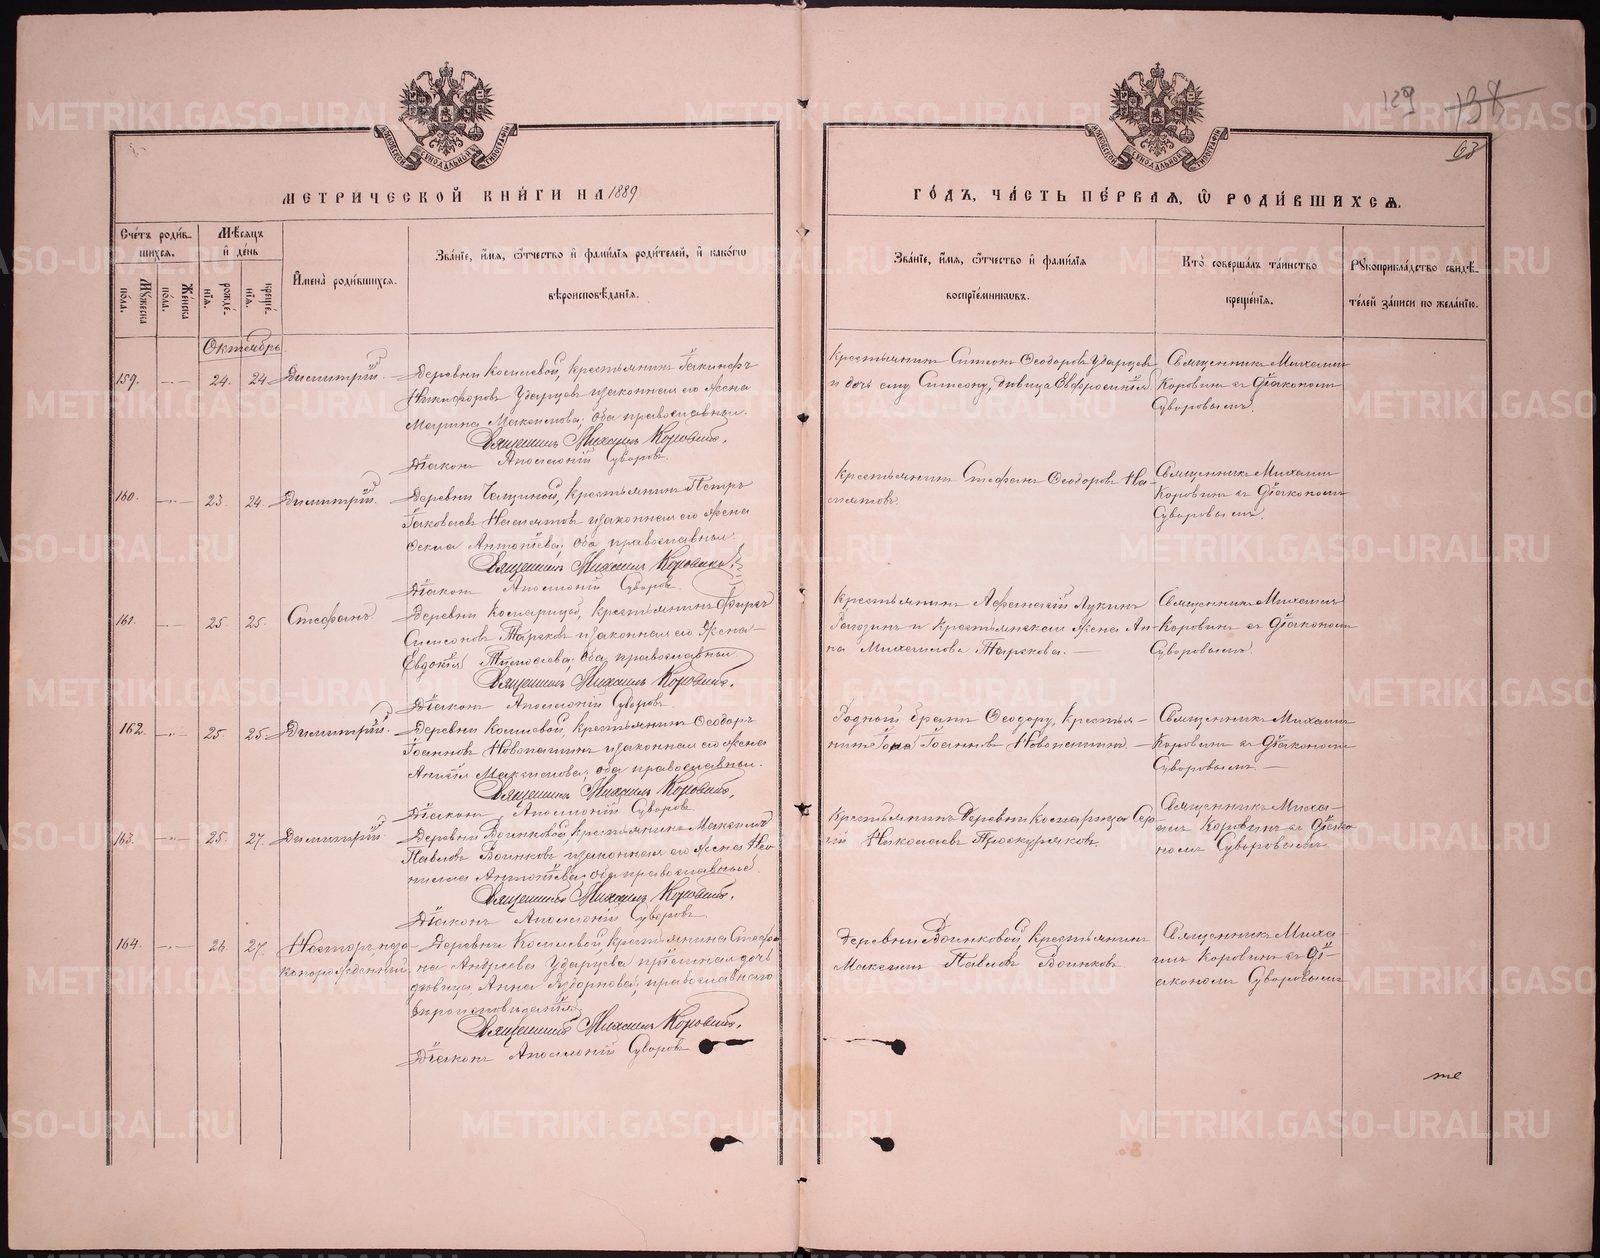 129 138
63
МЕТРИЧЕСКОЙ КНИГИ НА 1889
Счетъ родив-
шихся.
Мѣсяцъ
и день
Мужеска
пола.
Женска
пола.
рожде-
нія.
креще-
нія.
Имена родившихся.
Званіе, имя, отчество и фамилія родителей, и какого
вѣроисповѣданія.
Октябрь
159. — 24. 24 Димитрій.
Деревни Косиловой, крестьянинъ Іакинфъ
Никифоровъ Ударцевъ и законная его жена
Марина Максимова; оба православные.
Священникъ Михаилъ Коровинъ.
Діаконъ Аполлоній Суворовъ.
160. — 23 24. Димитрій.
Деревни крестьянинъ Петръ
Іаковлевъ и законная его жена
Фекла Антоніева; оба православные.
Священникъ Михаилъ Коровинъ.
Діаконъ Аполлоній Суворовъ.
161. — 25. 25. Стефанъ.
Деревни крестьянинъ Фирсъ
Симеоновъ и законная его жена
Евдокія оба православные.
Священникъ Михаилъ Коровинъ.
Діаконъ Аполлоній Суворовъ.
162. — 25. 25. Димитрій.
Деревни Косиловой, крестьянинъ Феодоръ
Іоанновъ Новопашинъ и законная его жена
Максимова; оба православные.
Священникъ Михаилъ Коровинъ.
Діаконъ Аполлоній Суворовъ
163. — 25. 27. Димитрій.
Деревни Воинковой, крестьянинъ Максимъ
Павловъ Воинковъ и законная его жена Нео-
нилла Антоніева; оба православные.
Священникъ Михаилъ Коровинъ.
Діаконъ Аполлоній Суворовъ
164. — 26. 27. Несторъ, неза-
коннорожденный.
Деревни Косиловой крестьянина Стефа-
на Андреева Ударцева пріемная дочь
дѣвица Анна православнаго
вѣроисповѣданія.
Священникъ Михаилъ Коровинъ.
Діаконъ Аполлоній Суворовъ
ГОДЪ, ЧАСТЬ ПЕРВАЯ, Ѡ РОДИВШИХСЯ.
Званіе, имя, отчество и фамилія
воспріемниковъ.
Кто совершалъ таинство
крещенія.
Рукоприкладство свидѣ-
телей записи по желанію.
Крестьянинъ Симеонъ Феодоровъ Ударцевъ
и дочь ему Симеону, дѣвица Евфросинія
Священникъ Михаилъ
Коровинъ съ діакономъ
Суворовымъ.
Крестьянинъ Стефанъ Феодоровъ
Священникъ Михаилъ
Коровинъ съ діакономъ
Суворовымъ.
Крестьянинъ Афанасій Лукинъ
и крестьянская жена Ан-
на Михаилова
Священникъ Михаилъ
Коровинъ съ діакономъ
Суворовымъ.
Родной братъ Феодору, крестья-
нинъ Іоаннъ Іоанновъ Новопашинъ. —
Священникъ Михаилъ
Коровинъ съ діакономъ
Суворовымъ. —
Крестьянинъ деревни Сер-
гій Николаевъ Проскуряковъ.
Священникъ Миха-
илъ Коровинъ съ діако-
номъ Суворовымъ.
Деревни Воинковой, крестьянинъ
Максимъ Павловъ Воинковъ
Священникъ Миха-
илъ Коровинъ съ ді-
акономъ Суворовымъ.
METRIKI.GASO-URAL.RU